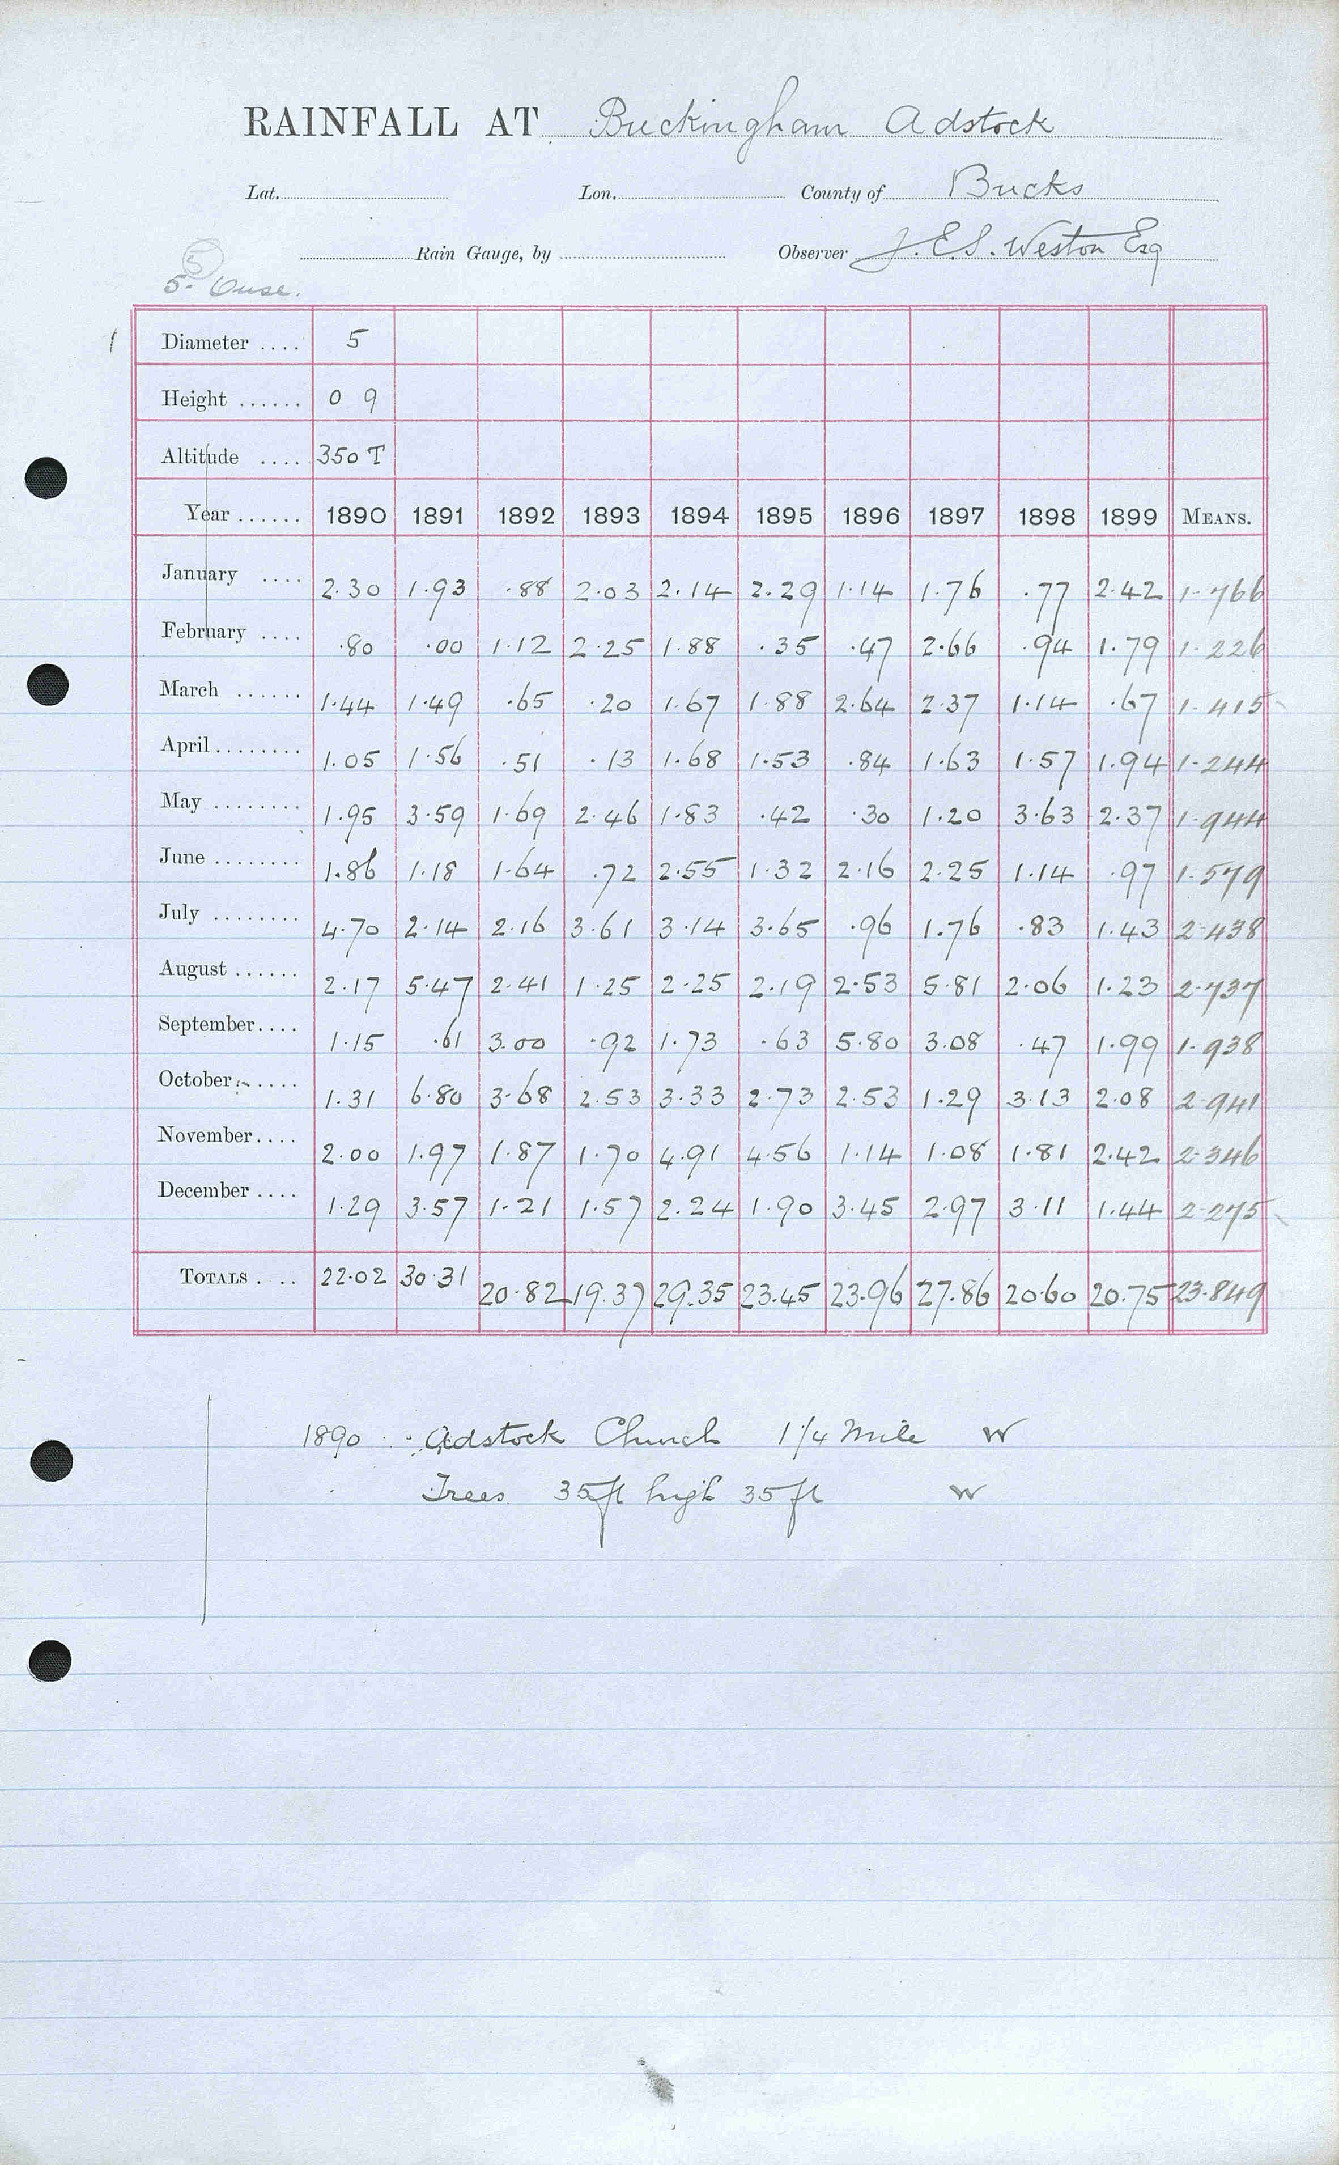 RAINFALL AT Buckingham Adstock
Lat. Lon. County of Bucks
Rain Gauge, by Observer J. E. S. Weston Esq
5
5. Ouse.
1 Diameter .... 5
Height ...... 0 9
Altitude .... 350 T
Year ...... 1890 1891 1892 1893 1894 1895 1896 1897 1898 1899 MEANS.
January .... 2.30 1.93 .88 2.03 2.14 2.29 1.14 1.76 .77 2.42 1.766
February .... .80 .00 1.12 2.25 1.88 .35 .47 2.66 .94 1.79 1.226
March ...... 1.44 1.49 .65 .20 1.67 1.88 2.64 2.37 1.14 .67 1.415
April ........ 1.05 1.56 .51 .13 1.68 1.53 .84 1.63 1.57 1.94 1.244
May ........ 1.95 3.59 1.69 2.46 1.83 .42 .30 1.20 3.63 2.37 1.944
June ........ 1.86 1.18 1.64 .72 2.55 1.32 2.16 2.25 1.14 .97 1.579
July ........ 4.70 2.14 2.16 3.61 3.14 3.65 .96 1.76 .83 1.43 2.438
August ...... 2.17 5.47 2.41 1.25 2.25 2.19 2.53 5.81 2.06 1.23 2.737
September.... 1.15 .61 3.00 .92 1.73 .63 5.80 3.08 .47 1.99 1.938
October...... 1.31 6.80 3.68 2.53 3.33 2.73 2.53 1.29 3.13 2.08 2.941
November.... 2.00 1.97 1.87 1.70 4.91 4.56 1.14 1.08 1.81 2.42 2.346
December .... 1.29 3.57 1.21 1.57 2.24 1.90 3.45 2.97 3.11 1.44 2.275
TOTALS .... 22.02 30.31 20.82 19.37 29.35 23.45 23.96 27.86 20.60 20.75 23.849
1890 Adstock Church 1 1/4 Mile W
Trees 35ft high 35ft W